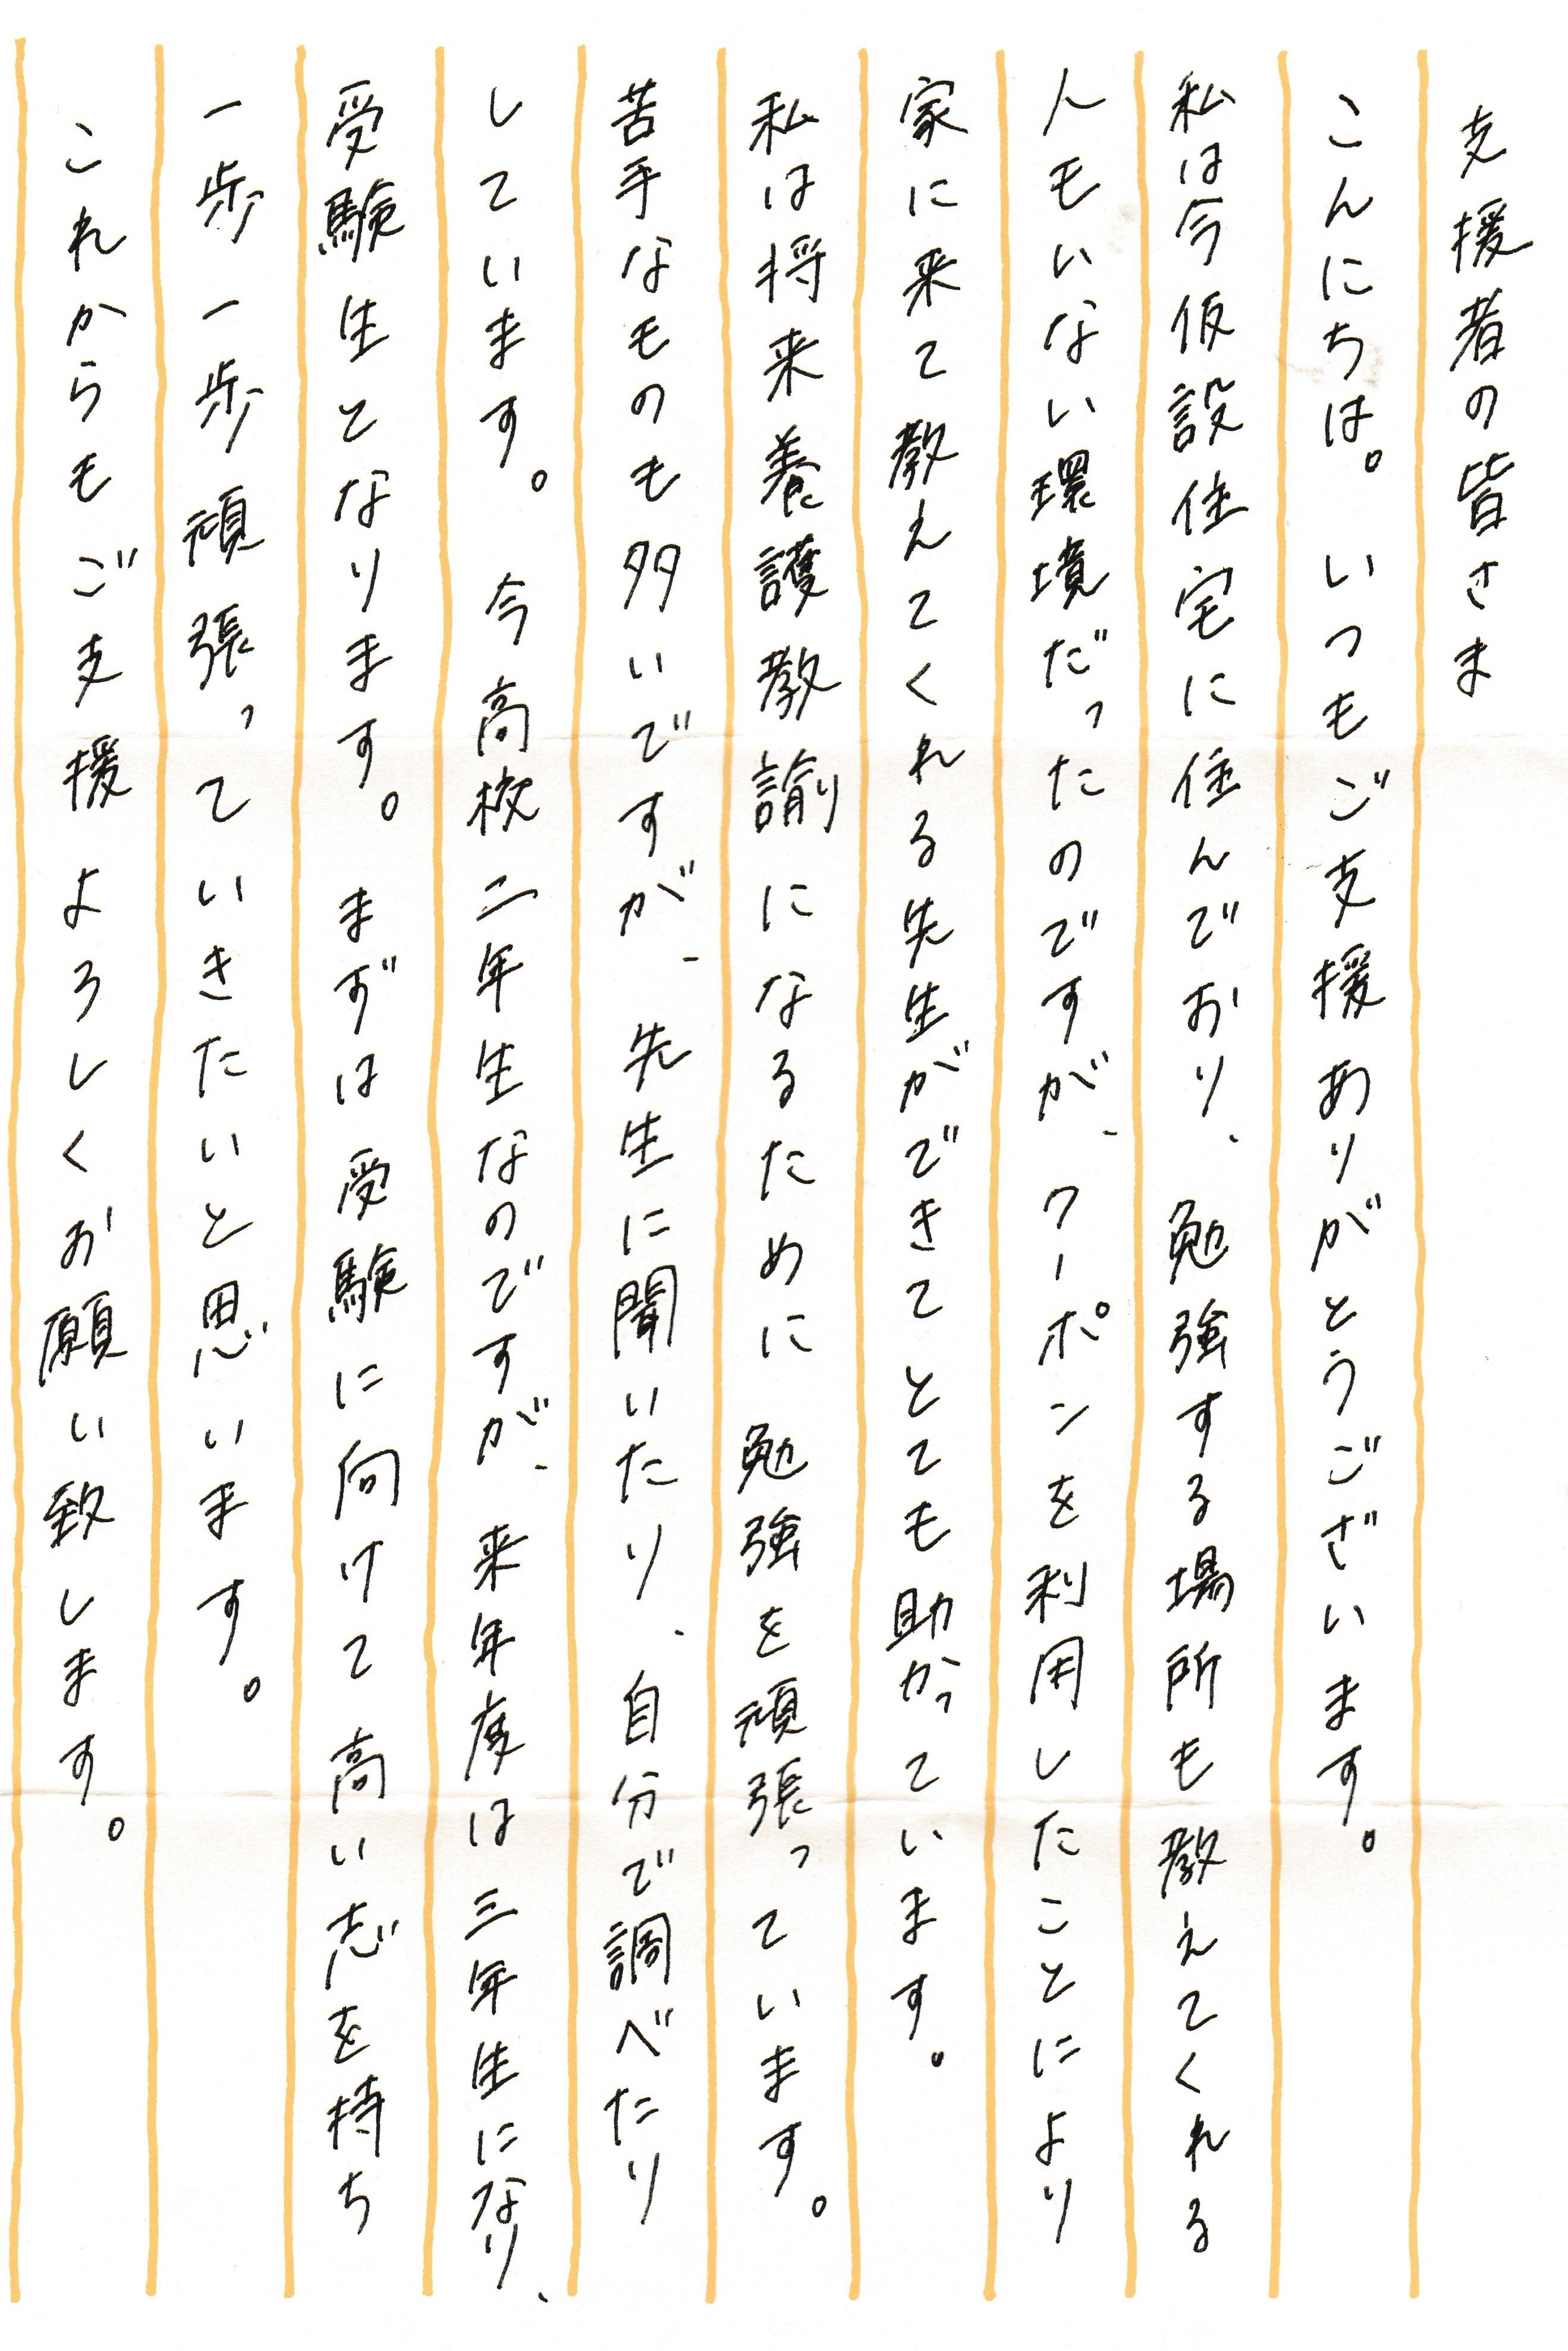 支援者の皆さま
こんにちは。いつもご支援ありがとうございます。
私は今仮設住宅に住んでおり、勉強する場所も教えてくれる
人もいない環境だったのですが、クーポンを利用したことにより
家に来て教えてくれる先生ができてとても助かっています。
私は将来養護教諭になるために勉強を頑張っています。
苦手なものも多いですが、先生に聞いたり、自分で調べたり
しています。今高校二年生なのですが、来年度は三年生になり、
受験生となります。まずは受験に向けて高い志を持ち
一歩一歩頑張っていきたいと思います。
これからもご支援よろしくお願い致します。